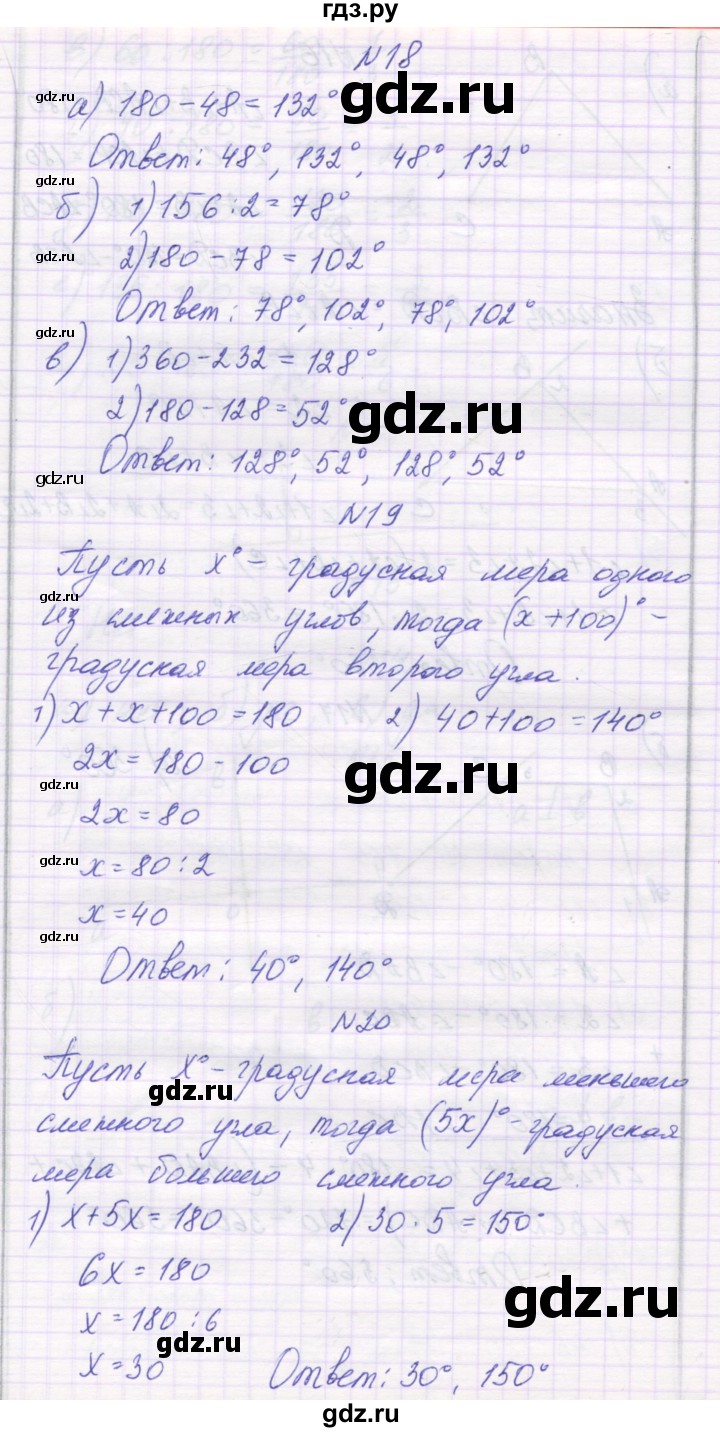 гдз.ру
N18
gdz.ru
а) 180 - 48 = 132°
gdz.ru
Ответ: 48°, 132°, 48°, 132°
gdz.ru
б) 1) 156 : 2 = 78°
gdz.ru
2) 180 - 78 = 102°
Ответ: 78°, 102°, 78°, 102°
gdz.ru
в) 1) 360 - 232 = 128°
2) 180 - 128 = 52°
gdz.ru
Ответ: 128°, 52°, 128°, 52°
gdz.ru
N19
Пусть x° - градусная мера одного
gdz.ru
из смежных углов, тогда (x + 100)° -
градуская мера второго угла.
gdz.ru
1) x + x + 100 = 180 2) 40 + 100 = 140°
2x = 180 - 100
gdz.ru
2x = 80
gdz.ru
x = 80 : 2
x = 40
gdz.ru
Ответ: 40°, 140°
N20
Пусть x° - градусная мера меньшего
gdz.ru
смежного угла, тогда (5x)° - градуская
мера большего смежного угла.
1) x + 5x = 180 2) 30 · 5 = 150°
6x = 180
gdz.ru
x = 180 : 6
gdz.ru
x = 30 Ответ: 30°, 150°
gdz.ru